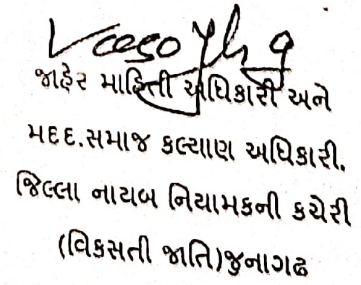 જાહેર માહિતી અધિકારી અને
મદદ.સમાજ કલ્યાણ અધિકારી.
જિલ્લા નાયબ નિયામકની કચેરી
(વિકસતી જાતિ)જુનાગઢ